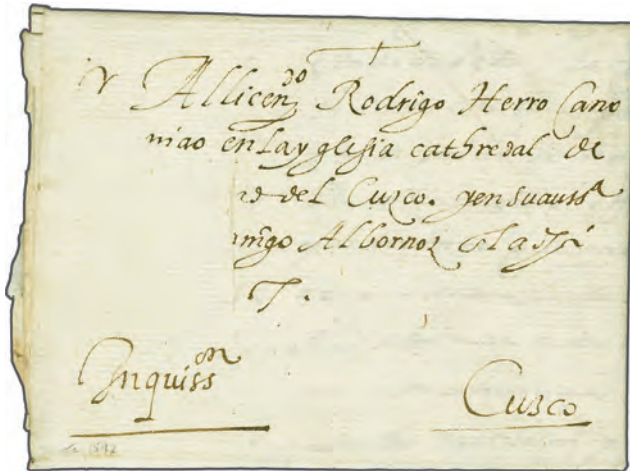 Al licen^do Rodrigo Herro Cano
nigo en La yglesia cathredal de
del Cuzco. y en su auss^a
Albornoz
Inquiss^on
Cuzco